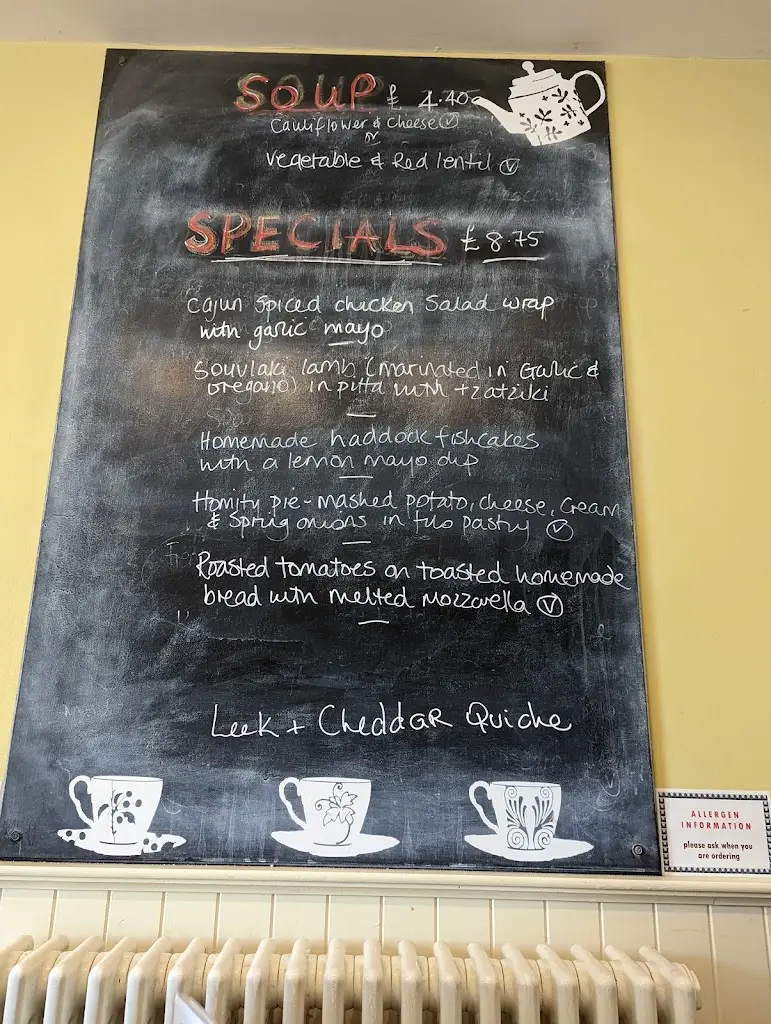 SOUP £ 4.40
Cauliflower & Cheese Ⓥ
or
Vegetable & Red lentil Ⓥ
SPECIALS £8.75
Cajun Spiced chicken Salad wrap
with garlic mayo
Souvlaki lamb (marinated in Garlic &
oregano) in pitta with tzatziki
Homemade haddock fishcakes
with a lemon mayo dip
Homity pie - mashed potato, cheese, Cream
& Spring onions in filo pastry Ⓥ
Roasted tomatoes on toasted homemade
bread with melted mozzarella Ⓥ
Leek + Cheddar Quiche
ALLERGEN
INFORMATION
please ask when you
are ordering